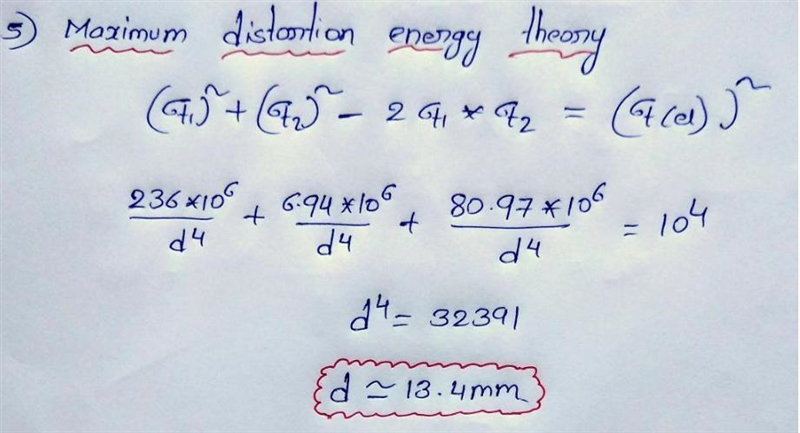 5) Maximum distortion energy theory
(σ₁)² + (σ₂)² − 2 σ₁ * σ₂ = (σ(el))²
236*10⁶/d⁴ + 6.94*10⁶/d⁴ + 80.97*10⁶/d⁴ = 10⁴
d⁴ = 32391
d ≃ 13.4mm